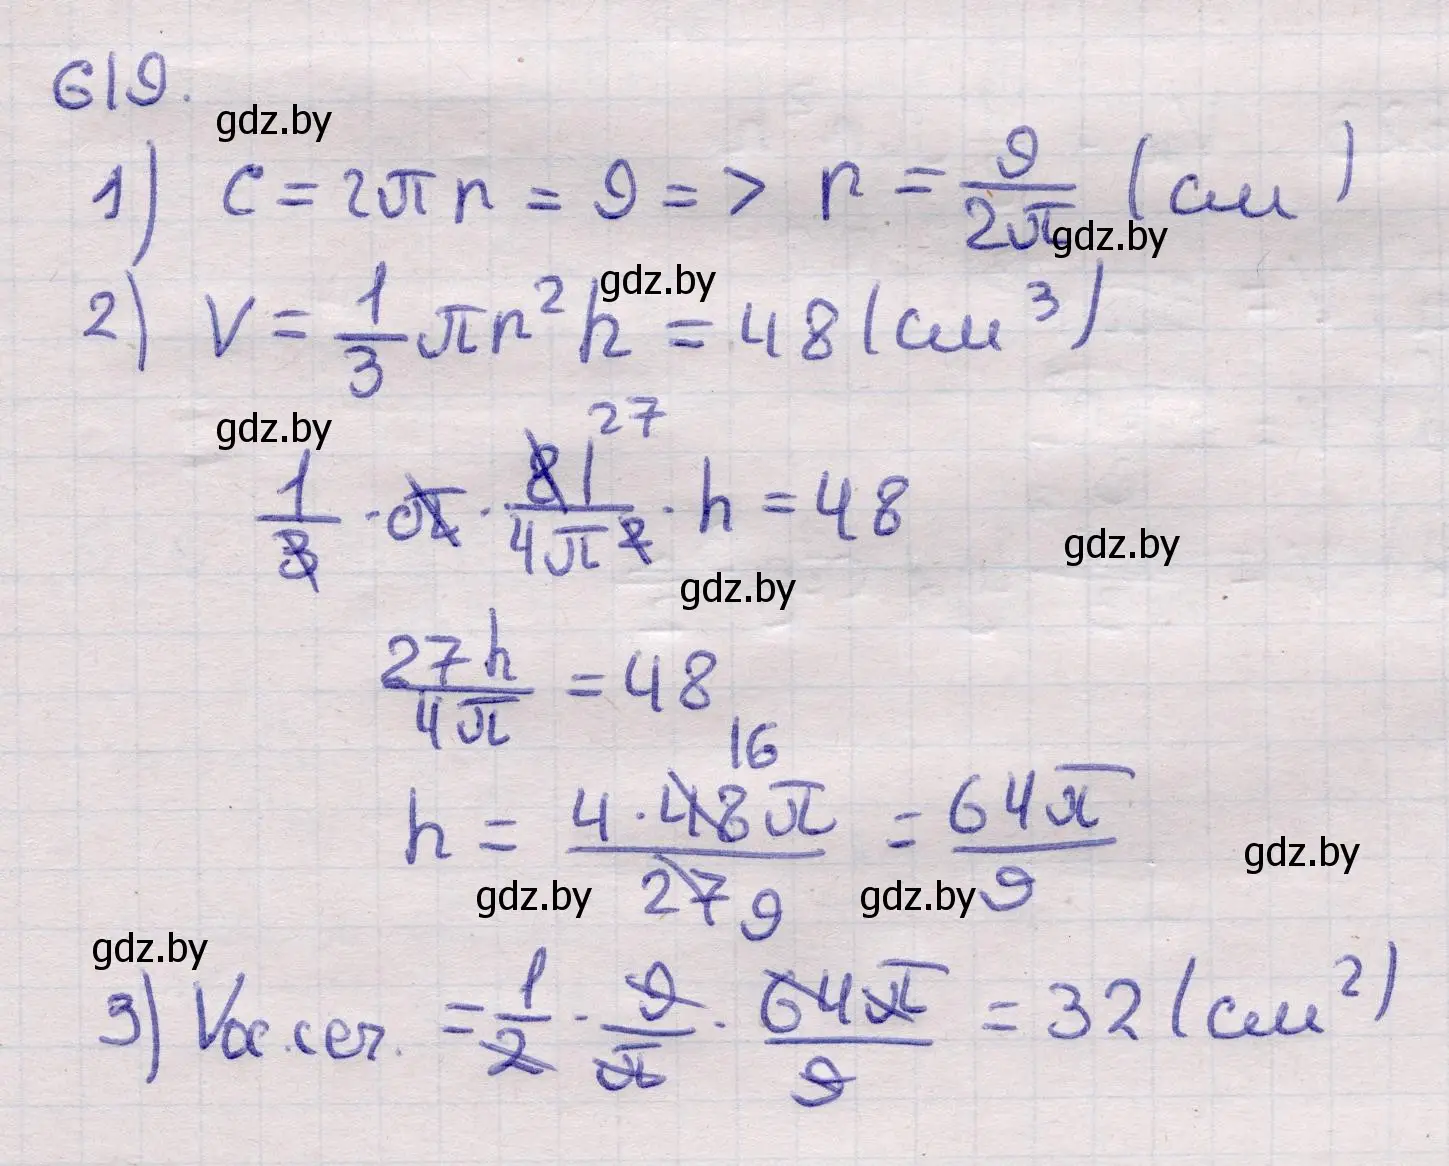 619.
gdz.by
1) C = 2πr = 9 => r = 9/2π (см)
gdz.by
gdz.by
2) V = 1/3 πr²h = 48 (см³)
gdz.by
27
1/3 · π · 81/4π² · h = 48
gdz.by
gdz.by
27h/4π = 48
16
h = 4 · 48π/27 9 = 64π/9
gdz.by
gdz.by
gdz.by
gdz.by
3) Vос.сеч. = 1/2 · 9/π · 64π/9 = 32 (см²)